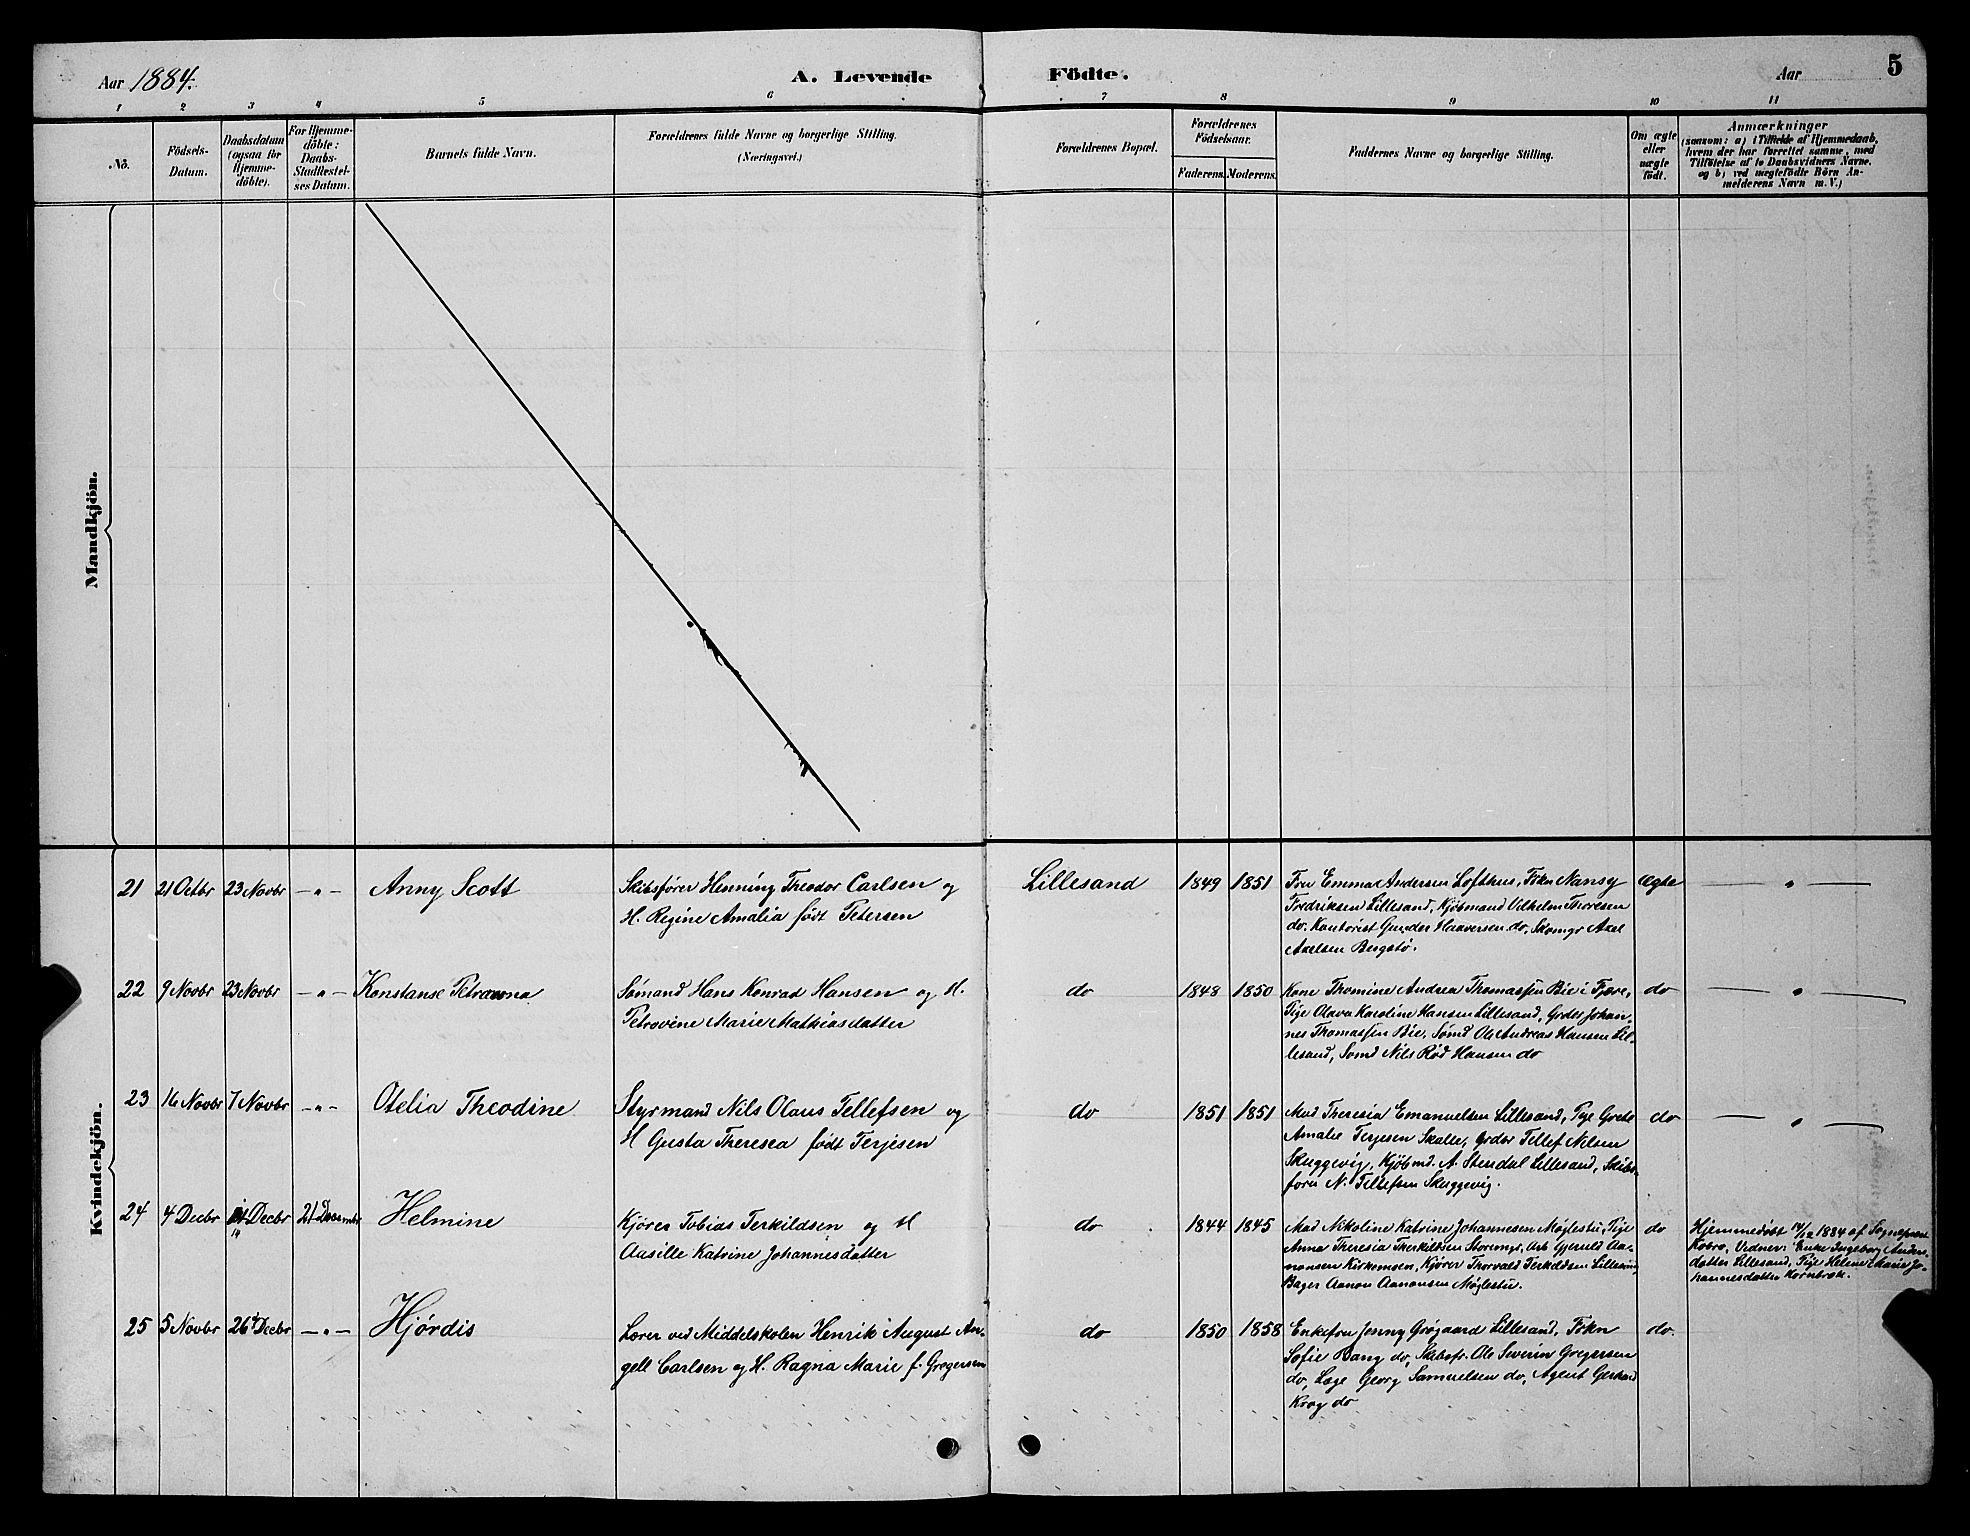 Aar 1884. A. Levende Födte. Aar 5
1 2 3 4 5 6 7 8 9 10 11
No. Födsels-Datum. Daabsdatum (ogsaa for Hjemmedöbte). For Hjemmedöbte: Daabs-Stadfæstelses Datum. Barnets fulde Navn. Forældrenes fulde Navne og borgerlige Stilling. (Næringsvei.) Forældrenes Bopæl. Forældrenes Födselsaar. Faderens. Moderens. Faddernes Navne og borgerlige Stilling. Om ægte eller uægte födt. Anmærkninger (saasom: a) i Tilfælde af Hjemmedaab, hvem der har forrettet samme, med Tilföielse af to Daabsvidners Navne, og b) ved uægtefödte Börn Anmelderens Navn m. V.)
Mandkjön.
Kvindekjön.
21 21 Octbr 23 Novbr -"- Anny Scott Skibsfører Henning Theodor Carlsen og Lillesand 1849 1851 Fru Emma Andersen Lofthus, Frkn Nansy Ægte - " -
H. Regine Amalia født Petersen Fredriksen Lillesand, Kjøbmand Vilhelm Thoresen
do. Kontorist Gunder Haaversen do, Skomgr Axel
Axelsen Bergstø.
22 9 Novbr 23 Novbr -"- Konstanse Petrowna Sømand Hans Konrad Hansen og H. do 1848 1850 Kone Thomine Andrea Thomassen Bie i Fjære, do - " -
Petrovine Marie Mathiasdatter Pige Olava Karoline Hansen Lillesand, Grdbr Johan-
nes Thomassen Bie, Sømd Ole Andreas Hansen Lil-
lesand, Somd Nils Rød Hansen do
23 16 Novbr 7 Novbr -"- Otelia Theodine Styrmand Nils Olaus Tellefsen og do 1851 1851 Mad Theresia Emanuelsen Lillesand, Pige Grete do - " -
H Gusta Theresea født Terjesen Amalie Terjesen Skalle, Grdbr Tellef Nilsen
Skuggevig, Kjøbmd. A. Stendal Lillesand, Skibs-
fører N. Tellefsen Skuggevig.
24 4 Decbr 14 Decbr 21 December Helmine Kjører Tobias Terkildsen og H do 1844 1845 Mad Nikoline Katrine Johannesen Møglestu, Pige do Hjemmedøbt 14/12 1884 af Sognepræst
Aasille Katrine Johannesdatter Anna Theresia Therkildsen Storemyr, Arb Gjeruld Aa- Kobro, Vidner: Enke Ingeborg Anders-
nonsen Kirkemoen, Kjører Thorvald Terkildsen Lillesand, datter Lillesand, Pige Helene Marie Jo-
Bager Aanon Aanonsen Møglestu. hannesdatter Kornbrok.
25 5 Novbr 26 Decbr -"- Hjørdis Lærer ved Middelskolen Henrik August An- do 1850 1858 Enkefru Jenny Grøgaard Lillesand, Frkn do.
gell Carlsen og H. Ragna Marie f. Gregersen Sofie Bang do, Skibsfr. Ole Severin Gregersen
do, Læge Georg Samuelsen do, Agent Gerhard
Krog do